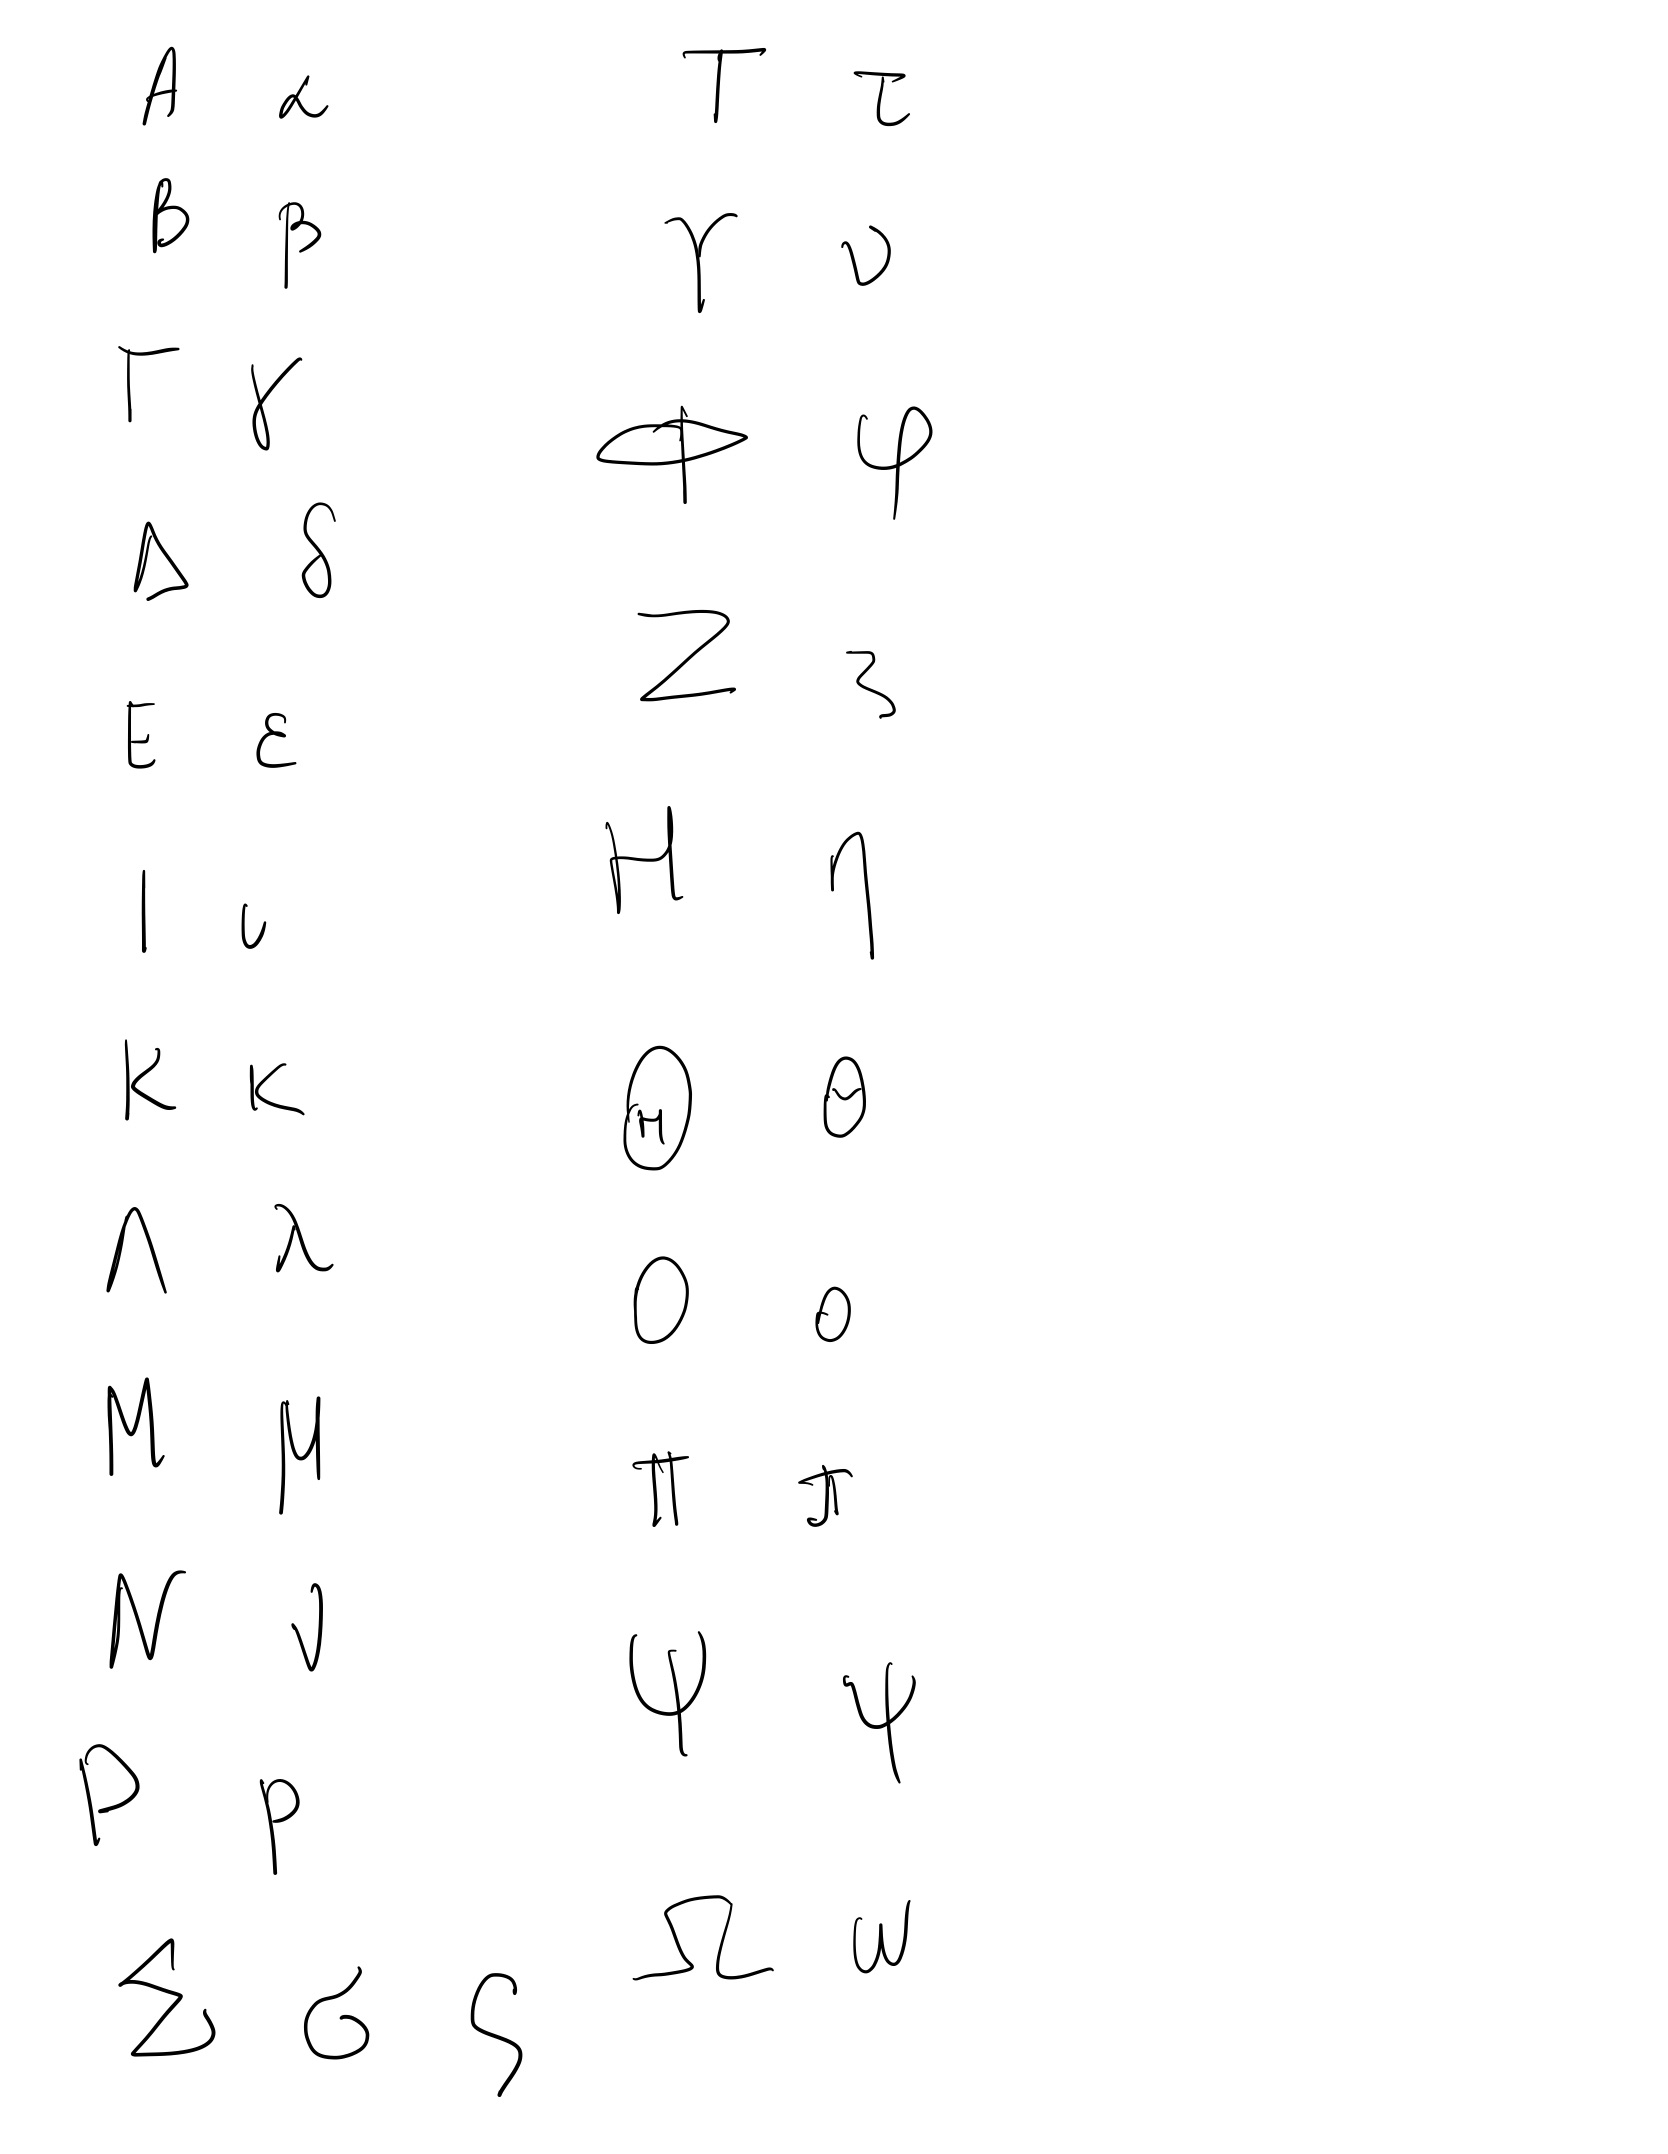 Α α
Β β
Γ γ
Δ δ
Ε ε
Ι ι
Κ κ
Λ λ
Μ μ
Ν ν
Ρ ρ
Σ σ ς
Τ τ
Υ υ
Φ φ
Ζ ζ
Η η
Θ θ
Ο ο
Π π
Ψ ψ
Ω ω